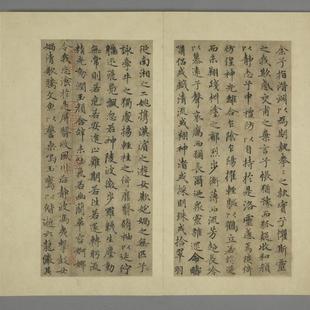 余兮指潛淵以為期執拳拳之款實兮懼斯靈
之我欺感交甫之棄言兮悵猶豫而狐疑收和顏
以靜志兮申禮防以自持於是洛靈感焉徙倚
彷徨神光離合乍陰乍陽擢輕軀以鶴立若將飛
而未翔踐椒塗之郁烈步蘅薄而流芳超長吟
以慕遠兮聲哀厲而彌長爾乃眾靈雜遝命疇
嘯侶或戲清流或翔神渚或採明珠或拾翠羽
從南湘之二姚攜漢濱之遊女歎匏媧之無匹兮
詠牽牛之獨處揚輕袿之倚靡翳脩袖以延佇
體迅飛鳧飄忽若神陵波微步羅襪生塵動
無常則若危若安進止難期若往若還轉眄流
精光潤玉顏含辭未吐氣若幽蘭華容婀娜
令我忘飡於是屏翳收風川后靜波馮夷擊鼓女
媧清歌騰文魚以警乘鳴玉鸞以偕逝六龍儼其